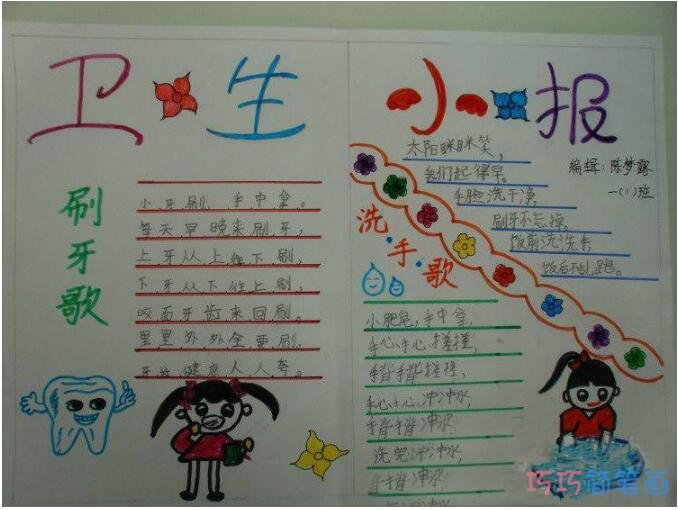 卫生小报
编辑：陈梦露
一（1）班
刷牙歌
小牙刷，手中拿。
每天早晚来刷牙，
上牙从上往下刷，
下牙从下往上刷，
咬面牙齿来回刷。
里里外外全要刷
牙齿健康人人夸。
太阳眯眯笑，
我们起得早。
手脸洗干净，
刷牙不忘掉。
饭前洗洗手
饭后不乱跑。
洗手歌
小肥皂，手中拿，
手心手心搓搓，
手背手背搓搓，
手心手心冲冲水，
手背手背冲水，
洗完冲冲水，
手背冲水，
巧巧简笔画